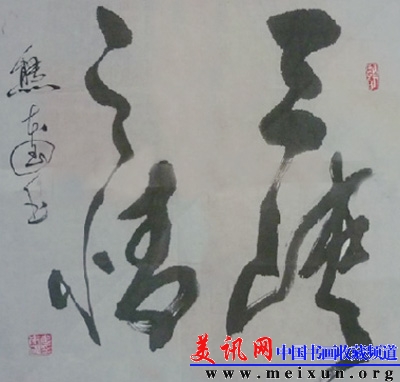 三峡
之情
熊
美讯网中国书画收藏频道
www.meixun.org